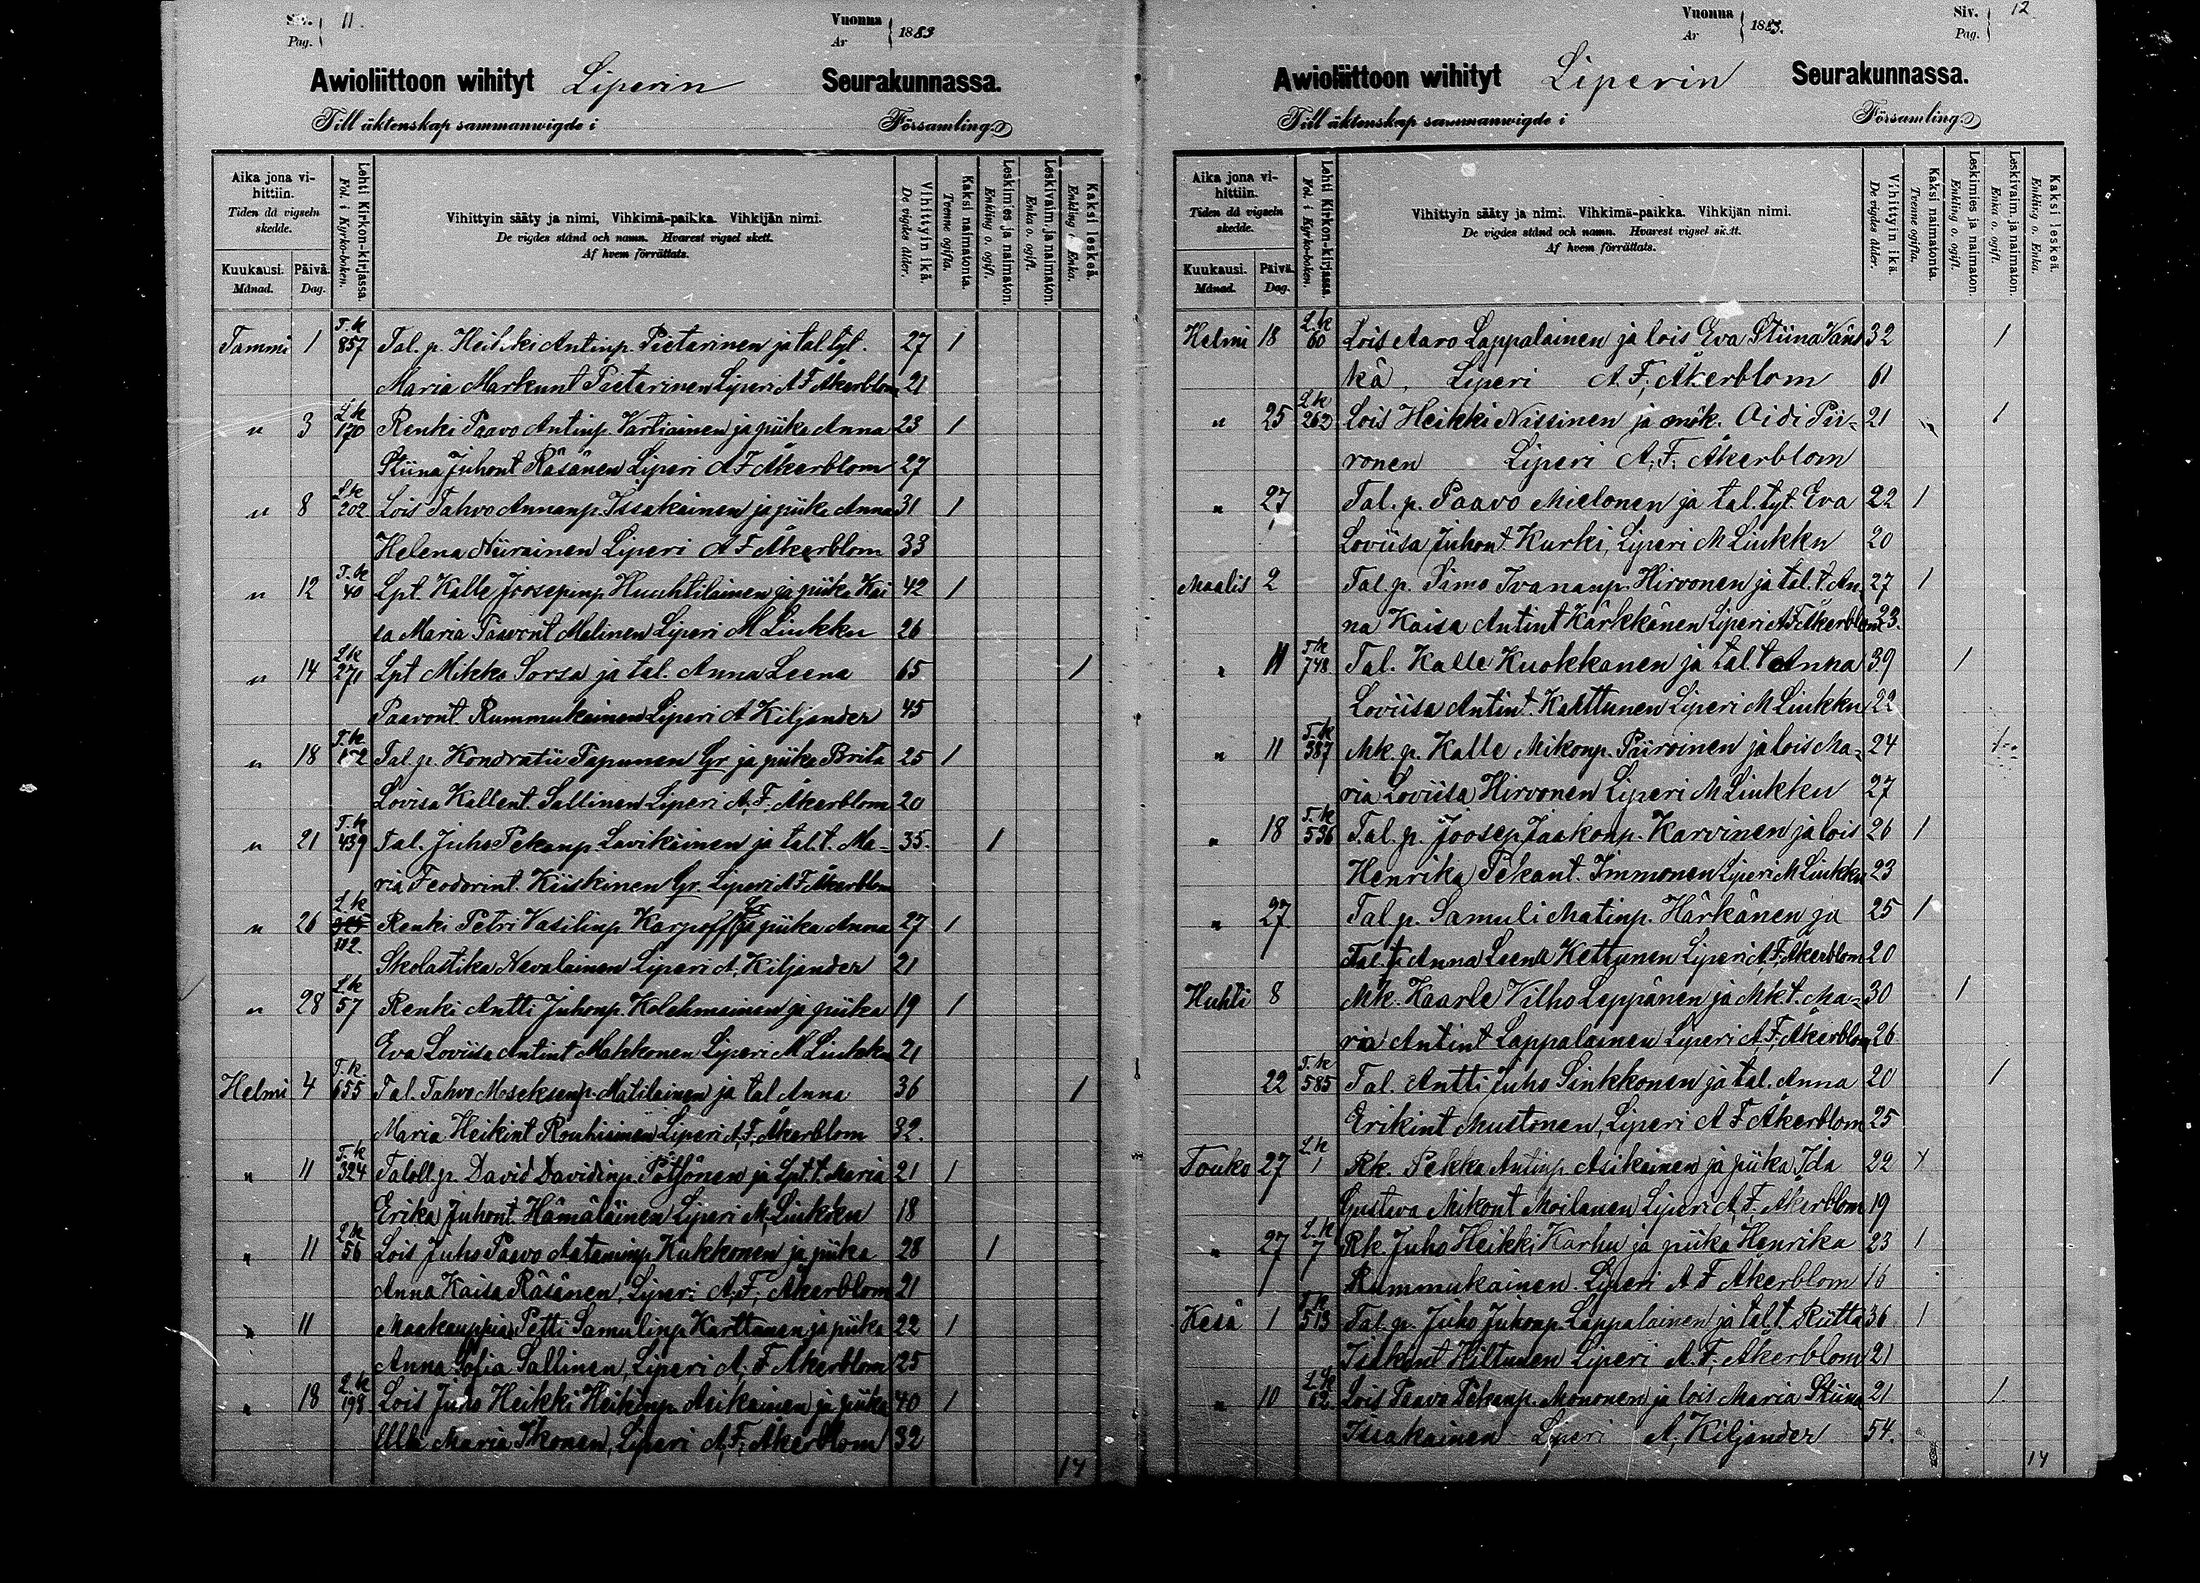 Siv. Pag. 11.
Vuonna År 1883
Awioliittoon wihityt Liperin Seurakunnassa.
Till äktenskap sammanwigde i Församling
Aika jona vihittiin.
Tiden då vigseln skedde.
Kuukausi. Månad.
Päivä. Dag.
Lehti Kirkon-kirjassa. Fol. i Kyrko-boken.
Vihittyin sääty ja nimi, Vihkimä-paikka. Vihkijän nimi.
De vigdes stånd och namn. Hvarest vigsel skett.
Af hvem förrättats.
Vihittyin ikä. De vigdes ålder.
Kaksi naimatonta. Tvenne ogifta.
Leskimies ja naimaton. Enkling o. ogift.
Leskivaim. ja naimaton. Enka o. ogift.
Kaksi leskeä. Enkling o. Enka.
Tammi 1 T.k 857 Tal. p. Heikki Antinp. Pietarinen ja tal. tyt. 27 1
Maria Markunt Pietarinen Liperi A F Åkerblom 21
" 3 L.k 170 Renki Paavo Antinp. Vartiainen ja piika Anna 23 1
Stiina Juhont Räsänen Liperi A F Åkerblom 27
" 8 L.k 202 Lois Tahvo Annanp. Issakainen ja piika Anna 31 1
Helena Niirainen Liperi A F Åkerblom 33
" 12 T.k 40 Lpt. Kalle Joosepinp. Huuhtilainen ja piika Kai 42 1
sa Maria Paavont Melinen Liperi M Liukku 26
" 14 L.k 271 Lpt Mikko Sorsa ja tal. Anna Leena 65 1
Paavont Rummukainen Liperi A Kiljander 45
" 18 T.k Tal. p. Kondratii Papunen Gr. ja piika Brita 25 1
Lovisa Kallent. Sallinen Liperi A, F, Åkerblom 20
" 21 T.k 439 Tal. Juho Pekanp Lavikainen ja tal. t. Ma- 35. 1
ria Feodorint. Kiiskinen Gr. Liperi A F Åkerblom
" 26 L.k 112. Renki Petri Vasilinp Karpoff Gr ja piika Anna 27 1
Skolastika Nevalainen Liperi A, Kiljander 21
" 28 L.k 57 Renki Antti Juhonp. Kolehmainen ja piika 19 1
Eva Loviisa Antint Makkonen Liperi M Liukku 21
Helmi 4 T.k. 655 Tal. Tahvo Moseksenp. Matilainen ja tal Anna 36 1
Maria Heikint Rouhiainen Liperi A, F, Åkerblom 32.
" 11 T.k 324 Taloll. p. David Davidinp. Pötjönen ja Lpt. t. Maria 21 1
Erika Juhont. Hämäläinen Liperi M, Liukku 18
" 11 L.k 56 Lois Juho Paavo Aataminp. Kukkonen ja piika 28 1
Anna Kaisa Räsänen, Liperi A, F, Åkerblom 21
" 11 Maakauppias Petti Samulinp. Karttunen ja piika 22 1
Anna Sofia Sallinen, Liperi A, F Åkerblom 25
" 18 L.k 198 Lois Juho Heikki Heikinp. Asikainen ja piika 40 1
Ulla Maria Ikonen, Liperi A, F, Åkerblom 32
14
Vuonna År 1883.
Siv. Pag. 12
Awioliittoon wihityt Liperin Seurakunnassa.
Till äktenskap sammanwigde i Församling
Aika jona vihittiin.
Tiden då vigseln skedde.
Kuukausi. Månad.
Päivä. Dag.
Lehti Kirkon-kirjassa. Fol. i Kyrko-boken.
Vihittyin sääty ja nimi. Vihkimä-paikka. Vihkijän nimi.
De vigdes stånd och namn. Hvarest vigsel skett.
Af hvem förrättats.
Vihittyin ikä. De vigdes ålder.
Kaksi naimatonta. Tvenne ogifta.
Leskimies ja naimaton. Enkling o. ogift.
Leskivaim. ja naimaton. Enka o. ogift.
Kaksi leskeä. Enkling o. Enka.
Helmi 18 L.k 60 Lois Aaro Lappalainen ja lois Eva Stiina Vänt 32 1
kä, Liperi A. F, Åkerblom 61
" 25 L.k 262 Lois Heikki Nissinen ja mök. Aidi Pii- 21 1
ronen Liperi A, F, Åkerblom
" 27 Tal. p. Paavo Mielonen ja tal. tyt. Eva 22 1
Loviisa Juhont Kurki, Liperi M Liukku 20
Maalis 2 Tal. p. Simo Ivananp. Hirvonen ja tal. t. An, 27 1
na Kaisa Antint Kärkkänen Liperi A F Åkerblom 23.
" 11 T.k 748 Tal. Kalle Kuokkanen ja tal. t Anna 39 1
Loviisa Antint. Karttunen Liperi M Liukku 22
" 11 T.k 387 Mk. p. Kalle Mikonp. Päiroinen ja lois Ma- 24 1
ria Loviisa Hirvonen Liperi M Liukku 27
" 18 T.k 536 Tal. p. Joosep Jaakonp. Karvinen ja lois 26 1
Henrika Pekant. Immonen Liperi M Liukku 23
" 27. Tal p. Samuli Matinp. Härkänen ja 25 1
Tal. t. Anna Leena Kettunen Liperi A, F, Åkerblom 20
Huhti 8 Mk. Kaarle Vilho Leppänen ja Mk. t. Ma- 30 1
ria Antint Lappalainen Liperi A, F, Åkerblom 26
22 T.k 585 Tal. Antti Juho Sinkkonen ja tal. Anna 20 1
Erikint Mustonen, Liperi A F Åkerblom 25
Touko 27 L.k 1 Rk. Pekka Antinp. Asikainen ja piika Ida 22 1
Gustava Mikont Moilanen Liperi A, F. Åkerblom 19
" 27 L.k 7 Rk. Juho Heikki Karhu ja piika Henrika 23 1
Rummukainen. Liperi A F Åkerblom 16
Kesä 1 T.k 513 Tal. p. Juho Juhonp. Lappalainen ja tal. t. Riitta 36 1
Isakint Hiltunen Liperi A. F, Åkerblom 21
" 10 L.k 62 Lois Paavo Pekanp. Mononen ja lois Maria Stiina 21 1
Issakainen Liperi A, Kiljander 54.
14